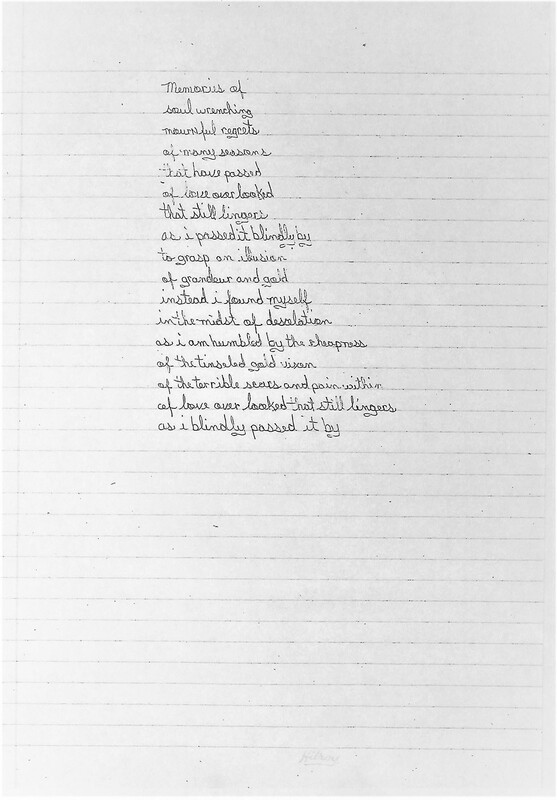 Memories of
soul wrenching
mournful regrets
of many sessions
that have passed
of love over looked
that still lingers
as i passed it blindly by
to grasp an illusion
of grandeur and gold
instead i found myself
in the midst of desolation
as i am humbled by the cheapness
of the tinseled gold vison
of the terrible scars and pain within
of love over looked that still lingers
as i blindly passed it by